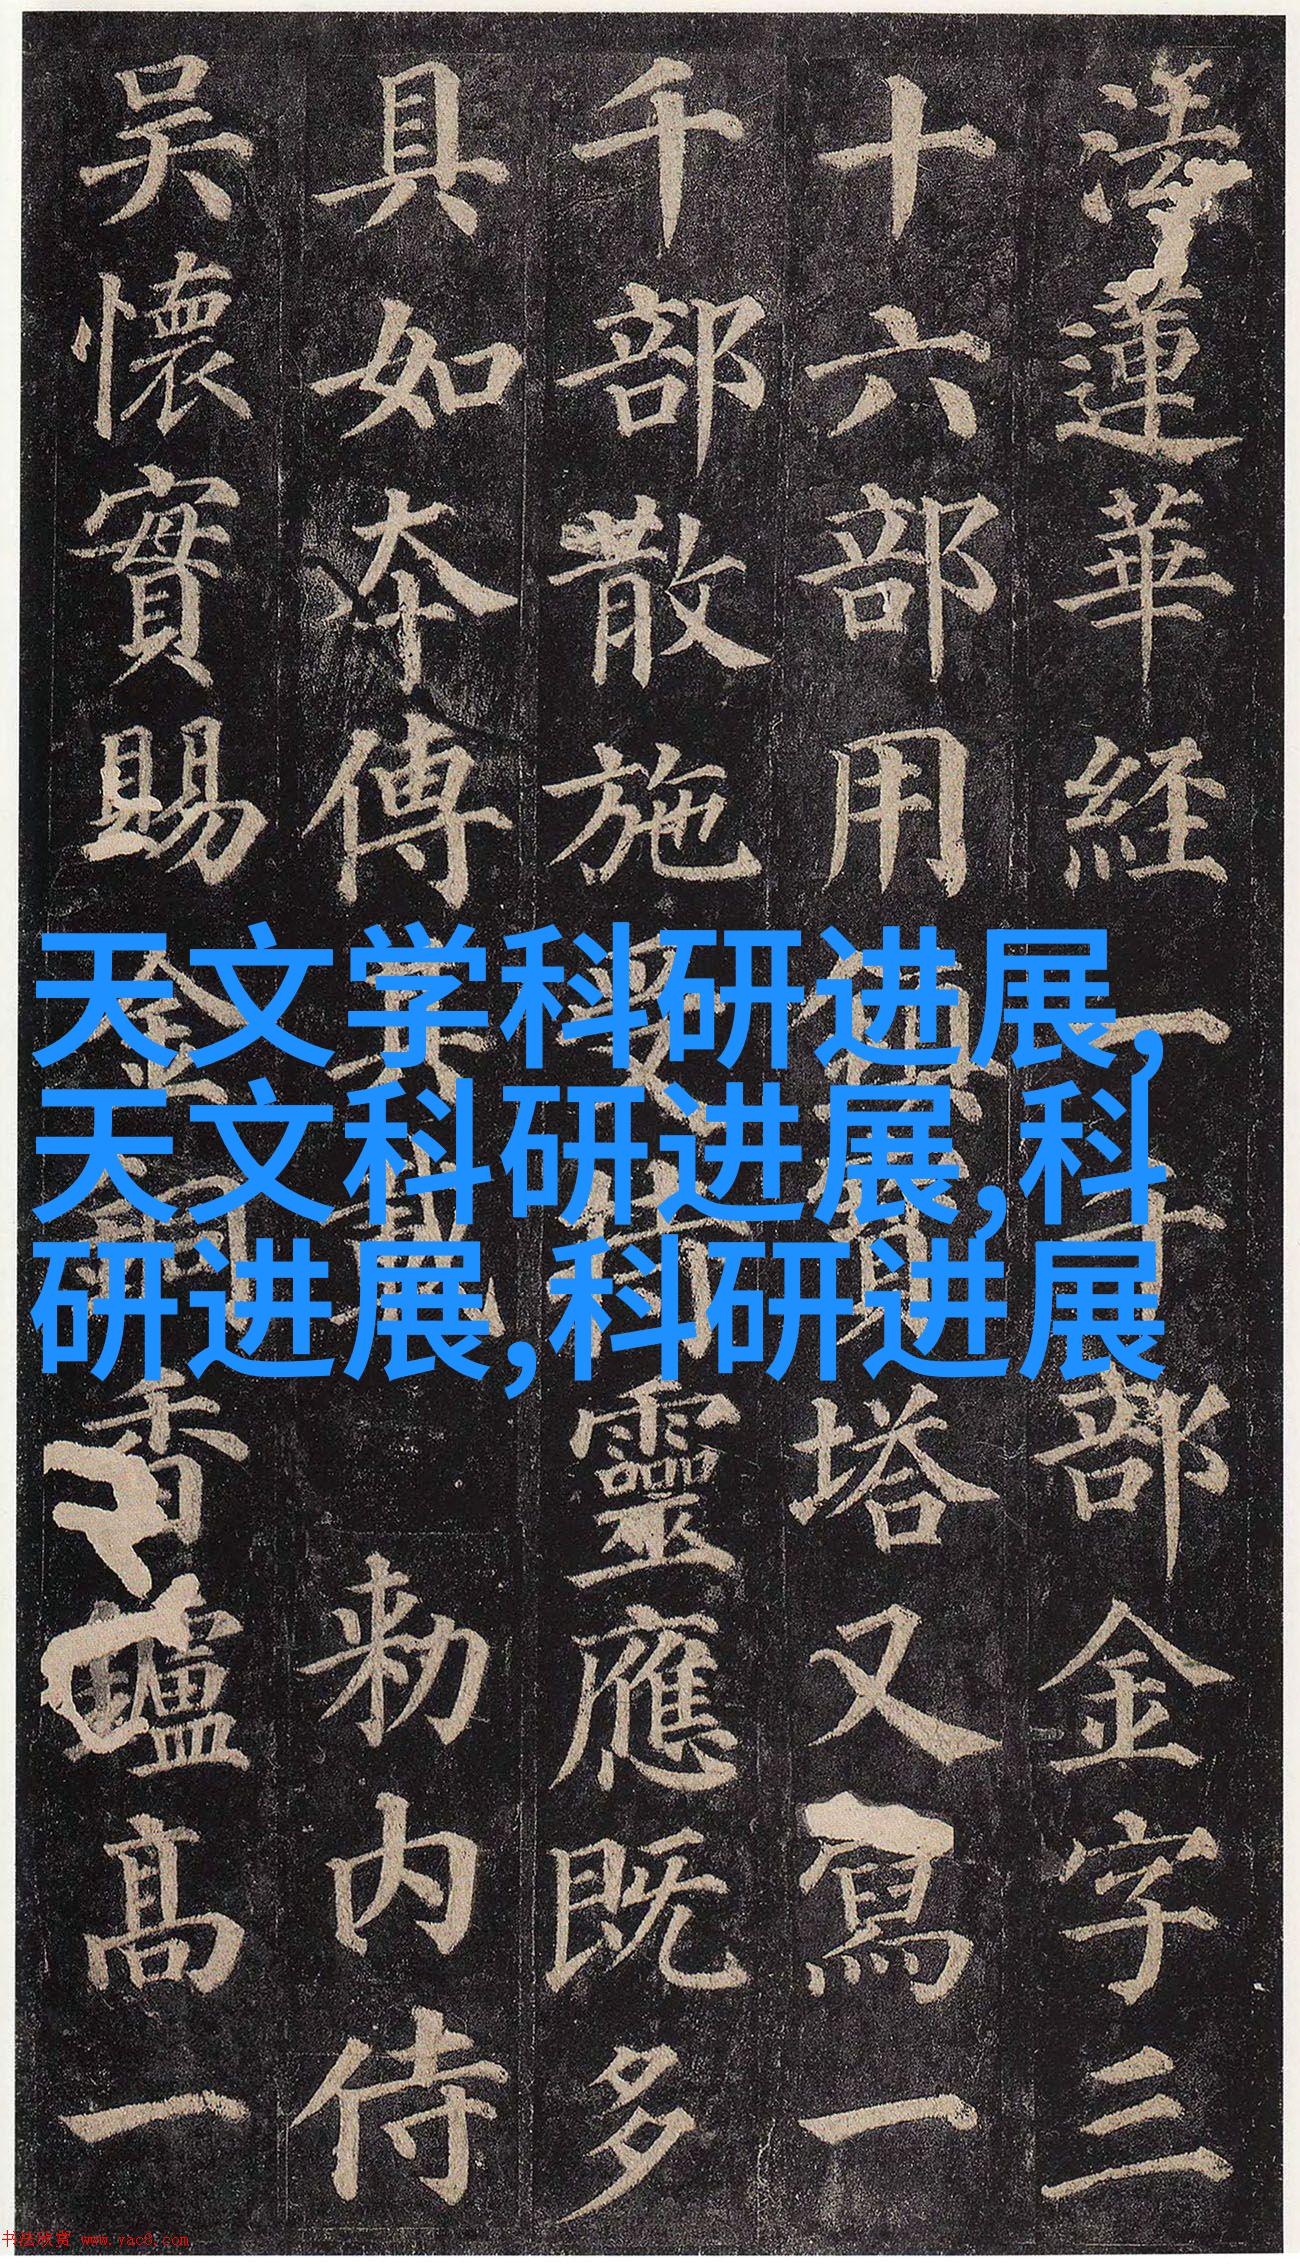 法蓮華経一千部金字三
十六部用鎮寶塔又寫一
千部散施受持靈應既多
具如本傳其載 勅内侍
吳懷實賜金銅香鑪高一
天文学科研进展,
天文科研进展,科
研进展,科研进展
书法欣赏 www.yac8.com